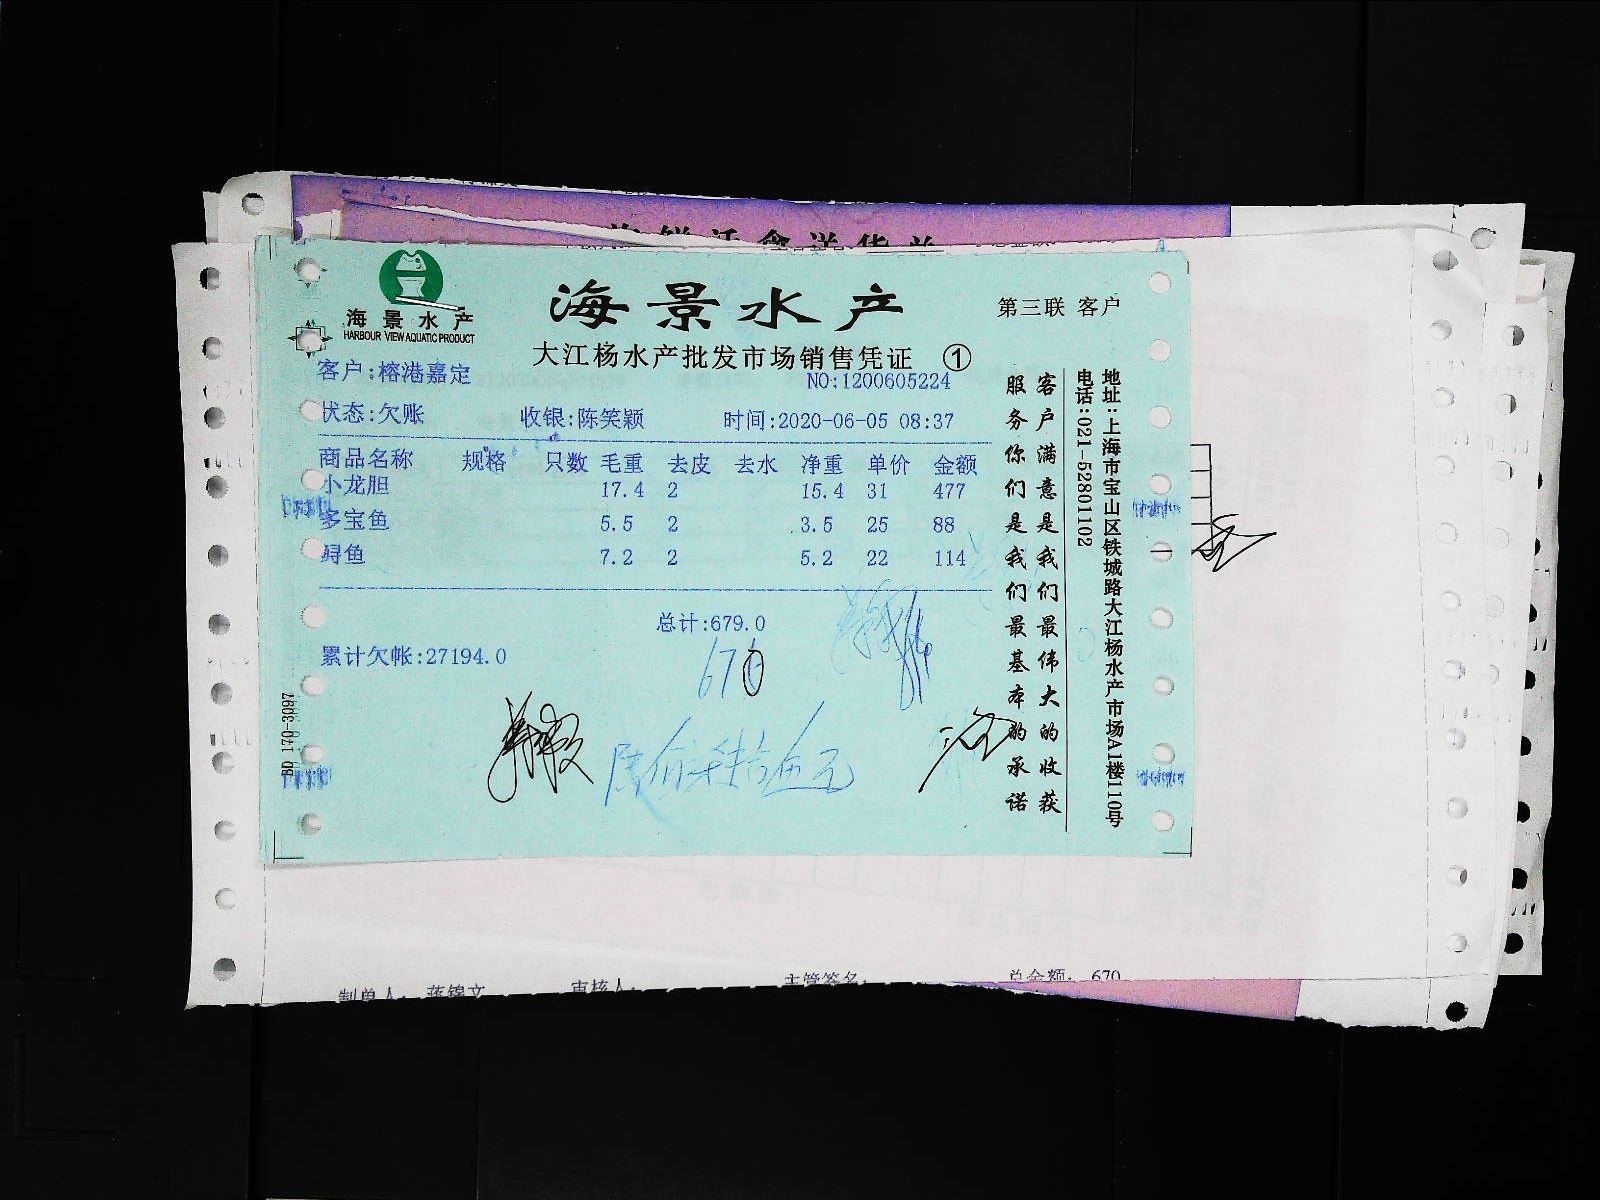 海景水产
HARBOUR VIEW AQUATIC PRODUCT
海景水产
第三联 客户
大江杨水产批发市场销售凭证 ①
客户:榕港嘉定
NO:1200605224
状态:欠账 收银:陈笑颖 时间:2020-06-05 08:37
商品名称 规格 只数 毛重 去皮 去水 净重 单价 金额
小龙胆 17.4 2 15.4 31 477
多宝鱼 5.5 2 3.5 25 88
鲟鱼 7.2 2 5.2 22 114
总计:679.0
累计欠帐:27194.0
670
客户满意是我们最伟大的收获
服务你们是我们最基本的承诺
地址:上海市宝山区铁城路大江杨水产市场A1楼110号
电话:021-52801102
BQ 170-3097
制单人: 蒋锦文 审核人: 主管签名: 总金额: 670